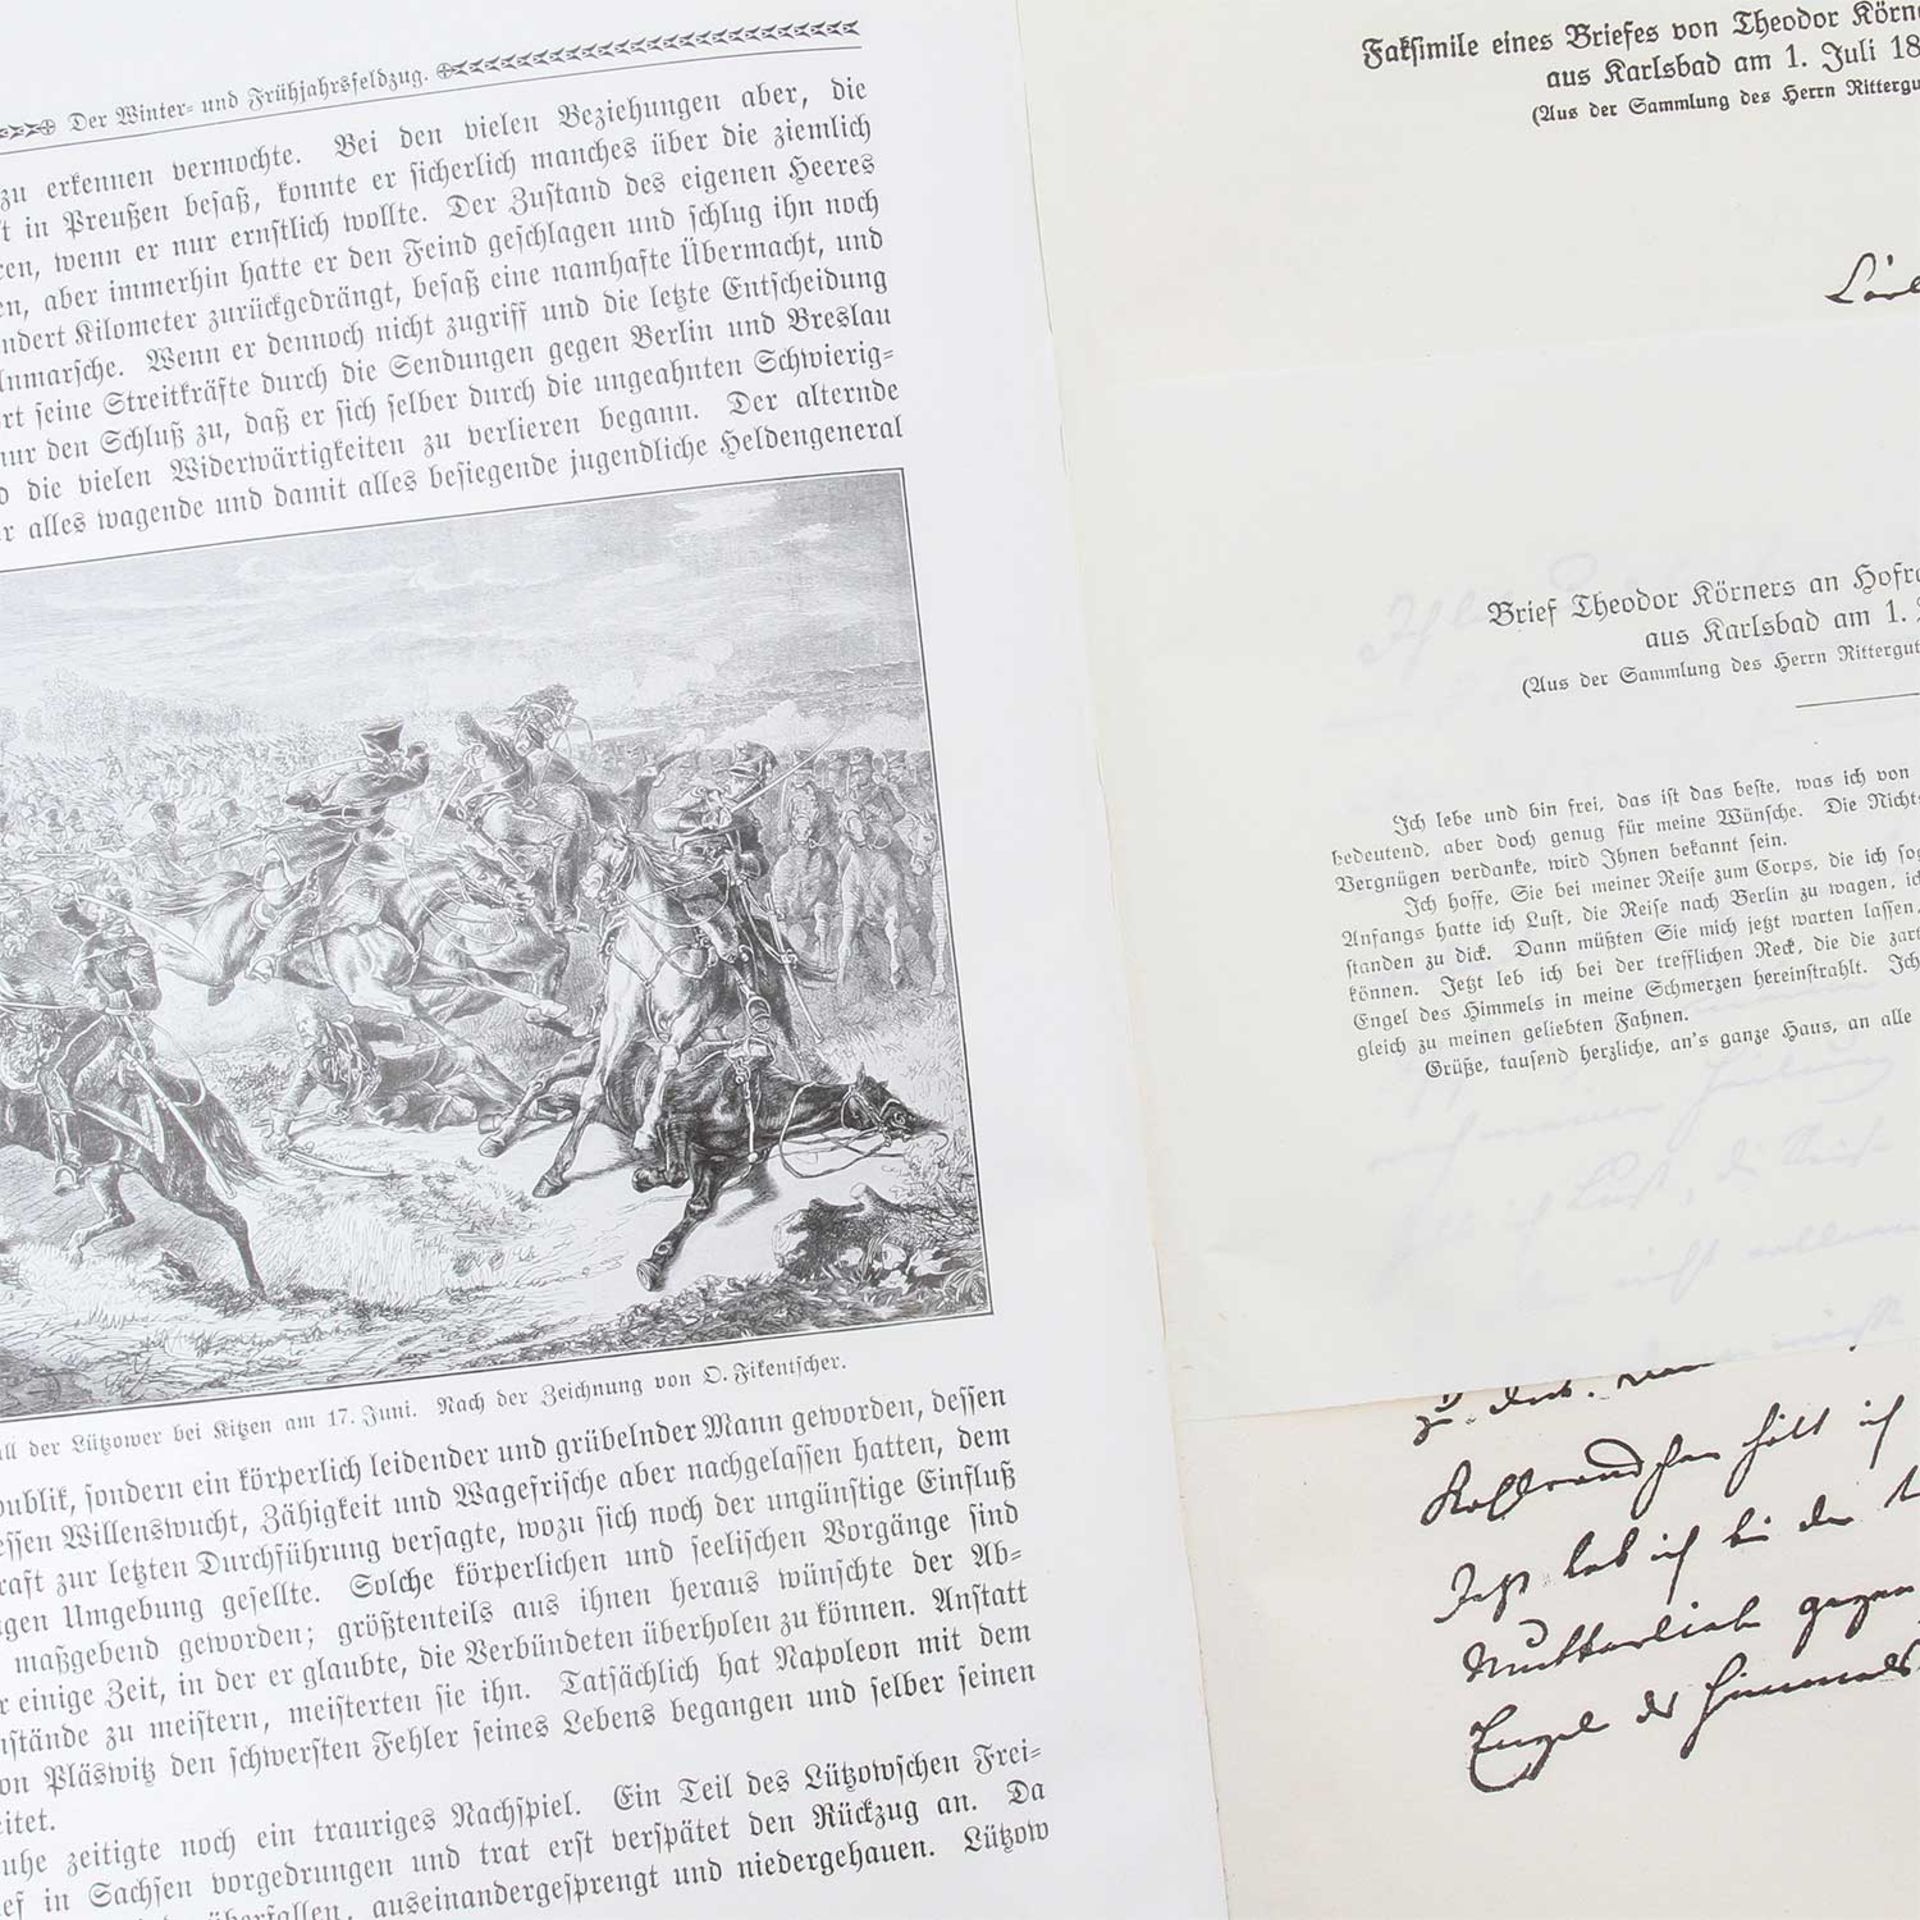 Der Winter- und Frühjahrsfeldzug.
zu erkennen vermochte. Bei den vielen Beziehungen aber, die
in Preußen besaß, konnte er sicherlich manches über die ziemlich
wenn er nur ernstlich wollte. Der Zustand des eigenen Heeres
aber immerhin hatte er den Feind geschlagen und schlug ihn noch
ndert Kilometer zurückgedrängt, besaß eine namhafte Übermacht, und
nmarsche. Wenn er dennoch nicht zugriff und die letzte Entscheidung
rt seine Streitkräfte durch die Sendungen gegen Berlin und Breslau
ur den Schluß zu, daß er sich selber durch die ungeahnten Schwierig-
die vielen Widerwärtigkeiten zu verlieren begann. Der alternde
r alles wagende und damit alles besiegende jugendliche Heldengeneral
ll der Lützower bei Kitzen am 17. Juni. Nach der Zeichnung von O. Fikentscher.
publik, sondern ein körperlich leidender und grübelnder Mann geworden, dessen
essen Willenswucht, Zähigkeit und Wagefrische aber nachgelassen hatten, dem
raft zur letzten Durchführung versagte, wozu sich noch der ungünstige Einfluß
gen Umgebung gesellte. Solche körperlichen und seelischen Vorgänge sind
maßgebend geworden; größtenteils aus ihnen heraus wünschte der Ab-
r einige Zeit, in der er glaubte, die Verbündeten überholen zu können. Anstatt
stände zu meistern, meisterten sie ihn. Tatsächlich hat Napoleon mit dem
on Pläswitz den schwersten Fehler seines Lebens begangen und selber seinen
eitet.
uhe zeitigte noch ein trauriges Nachspiel. Ein Teil des Lützowschen Frei-
ief in Sachsen vorgedrungen und trat erst verspätet den Rückzug an. Da
überfallen, auseinandergesprengt und niedergehauen. Lützow
Faksimile eines Briefes von Theodor Körn
aus Karlsbad am 1. Juli 18
(Aus der Sammlung des Herrn Rittergu
Brief Theodor Körners an Hofra
aus Karlsbad am 1. J
(Aus der Sammlung des Herrn Rittergut
Ich lebe und bin frei, das ist das beste, was ich von
bedeutend, aber doch genug für meine Wünsche. Die Nicht
Vergnügen verdanke, wird Ihnen bekannt sein.
Ich hoffe, Sie bei meiner Reise zum Corps, die ich sog
Anfangs hatte ich Lust, die Reise nach Berlin zu wagen, ic
standen zu dick. Dann müßten Sie mich jetzt warten lassen,
können. Jetzt leb ich bei der trefflichen Reck, die die zart
Engel des Himmels in meine Schmerzen hereinstrahlt. Ich
gleich zu meinen geliebten Fahnen.
Grüße, tausend herzliche, an's ganze Haus, an alle
hält ich
Jetzt leb ich bei der
Mutterliebe gegen
Engel des Himmels